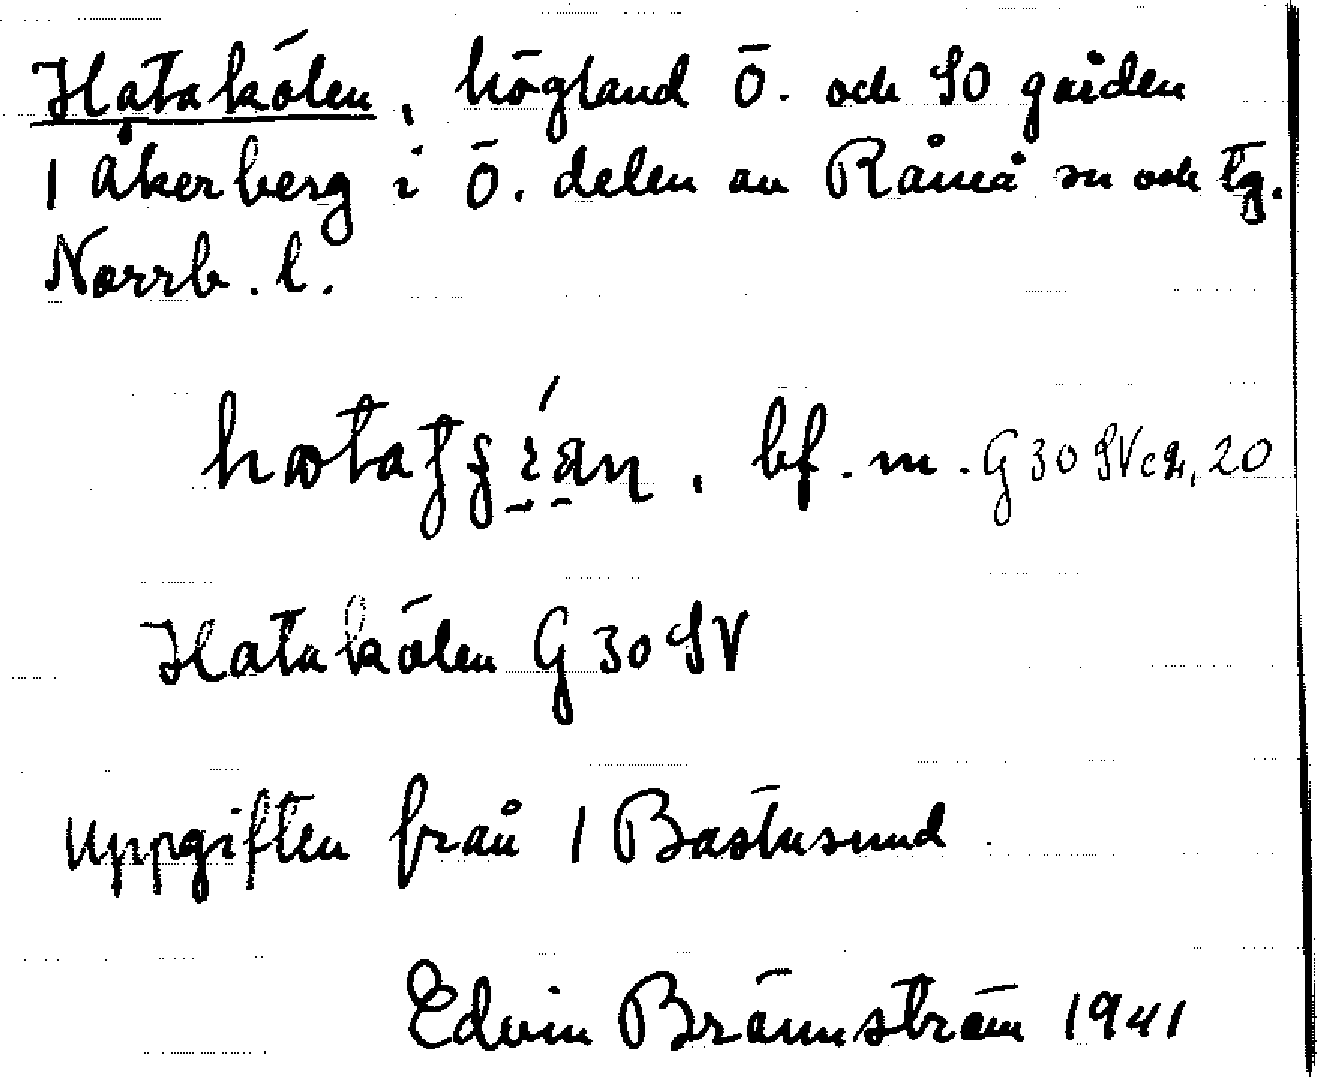 Hatakölen, högland Ö. och SO gården
1 Åkerberg i Ö. delen av Råneå sn och tg.
Norrb. l.
bf. m. G 30 SV c 2, 20
Hatakölen G 30 SV
Uppgiften från 1 Bastusund
Edvin Brännström 1941